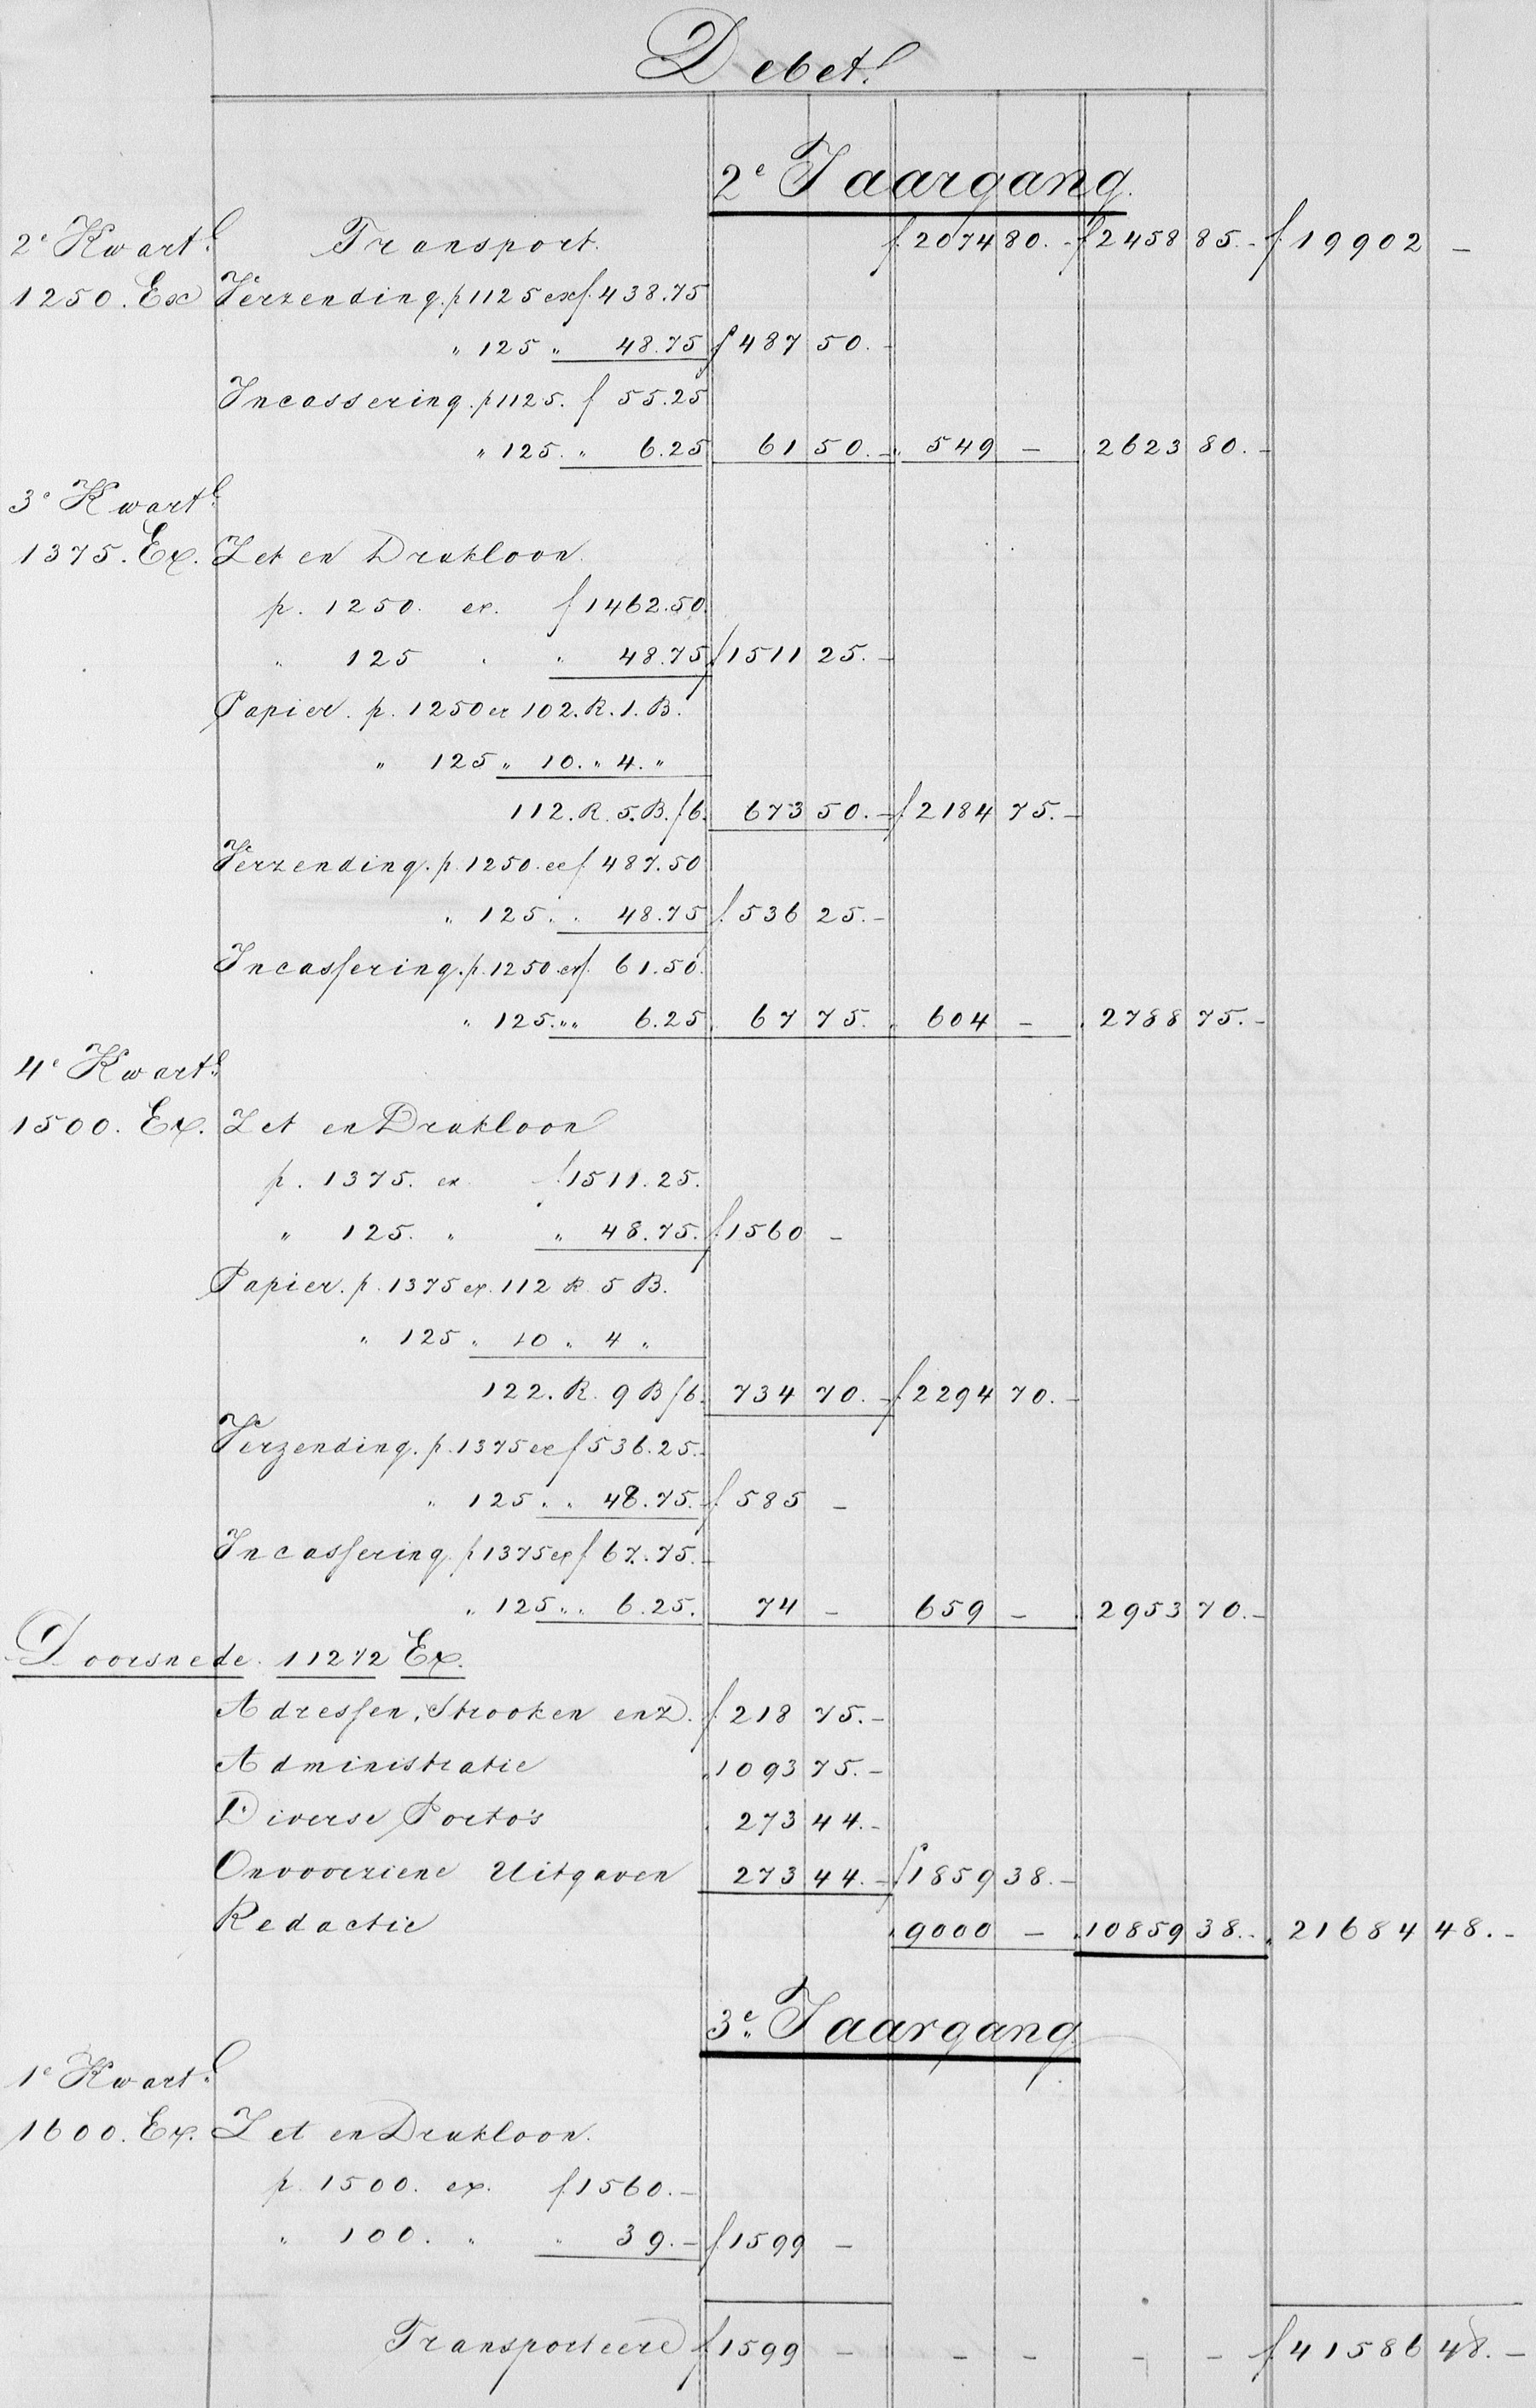 Debet
2e Jaargang.
2e Kwartl Transport. f 2074 80.- f 2458 85.- f 19902 -
1250. Ex Verzending. p 1125 ex f. 438.75
" 125 " 48.75 f 487 50.-
Incassering. p 1125. f 55.25
" 125. " 6.25 61 50.- " 549 - " 2623 80.-
3e Kwartl
1375. Ex. Zet en Drukloon.
p. 1250. ex. f 1462.50.
" 125 " " 48.75 f 1511 25.-
Papier. p. 1250 ex 102. R. 1. B.
" 125 " 10. " 4. "
112. R. 5. B. f 6. 673 50.- f 2184 75.-
Verzending. p. 1250. ex f 487.50
" 125 " " 48.75 f. 536 25.-
Incassering. p. 1250 ex f. 61.50.
" 125. " " 6.25 " 67 75. " 604 - " 2788 75.-
4e Kwartl
1500. Ex. Zet en Drukloon
p. 1375. ex f. 1511.25.
" 125. " " 48.75. f. 1560 -
Papier. p. 1375 ex. 112 R. 5 B.
" 125 " 10 " 4 "
122. R. 9 B f 6. 734 70.- f 2294 70.-
Verzending. p. 1375 ex f 536.25.-
" 125 " " 48.75.- f. 585 -
Incassering. p 1375 ex f 67.75.-
" 125 " " 6.25. 74 - 659 - " 2953 70.-
Doorsnede. 11272 Ex.
Adressen, Strooken enz. f. 218 75.-
Administratie " 1093 75.-
Diverse Porto's " 273 44.-
Onvoorziene Uitgaven 273 44.- f 1859 38.-
Redactie " 9000 - " 10859 38.- " 21684 48.-
3e Jaargang.
1e Kwartl
1600. Ex. Zet en Drukloon.
p. 1500. ex. f 1560.-
" 100. " " 39.- f 1599 -
Transporteere f 1599 - - - - - f. 41586 48.-